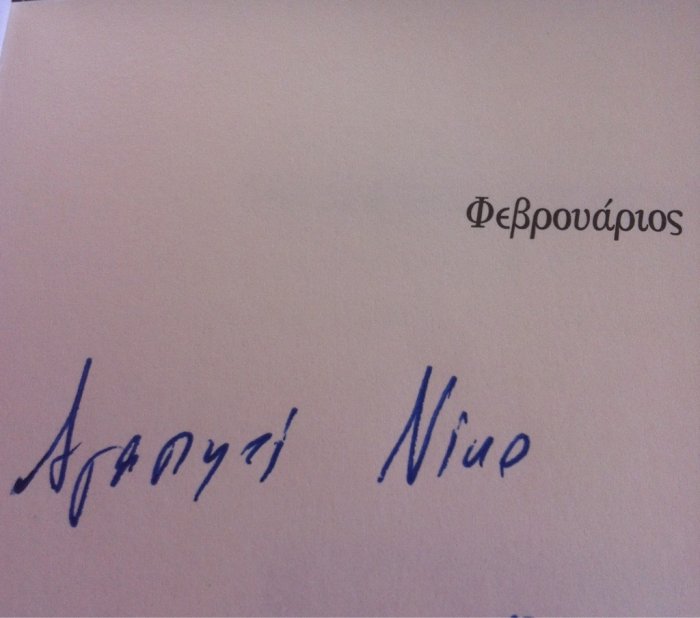 Φεβρουάριος
Αγαπητέ Νίκο